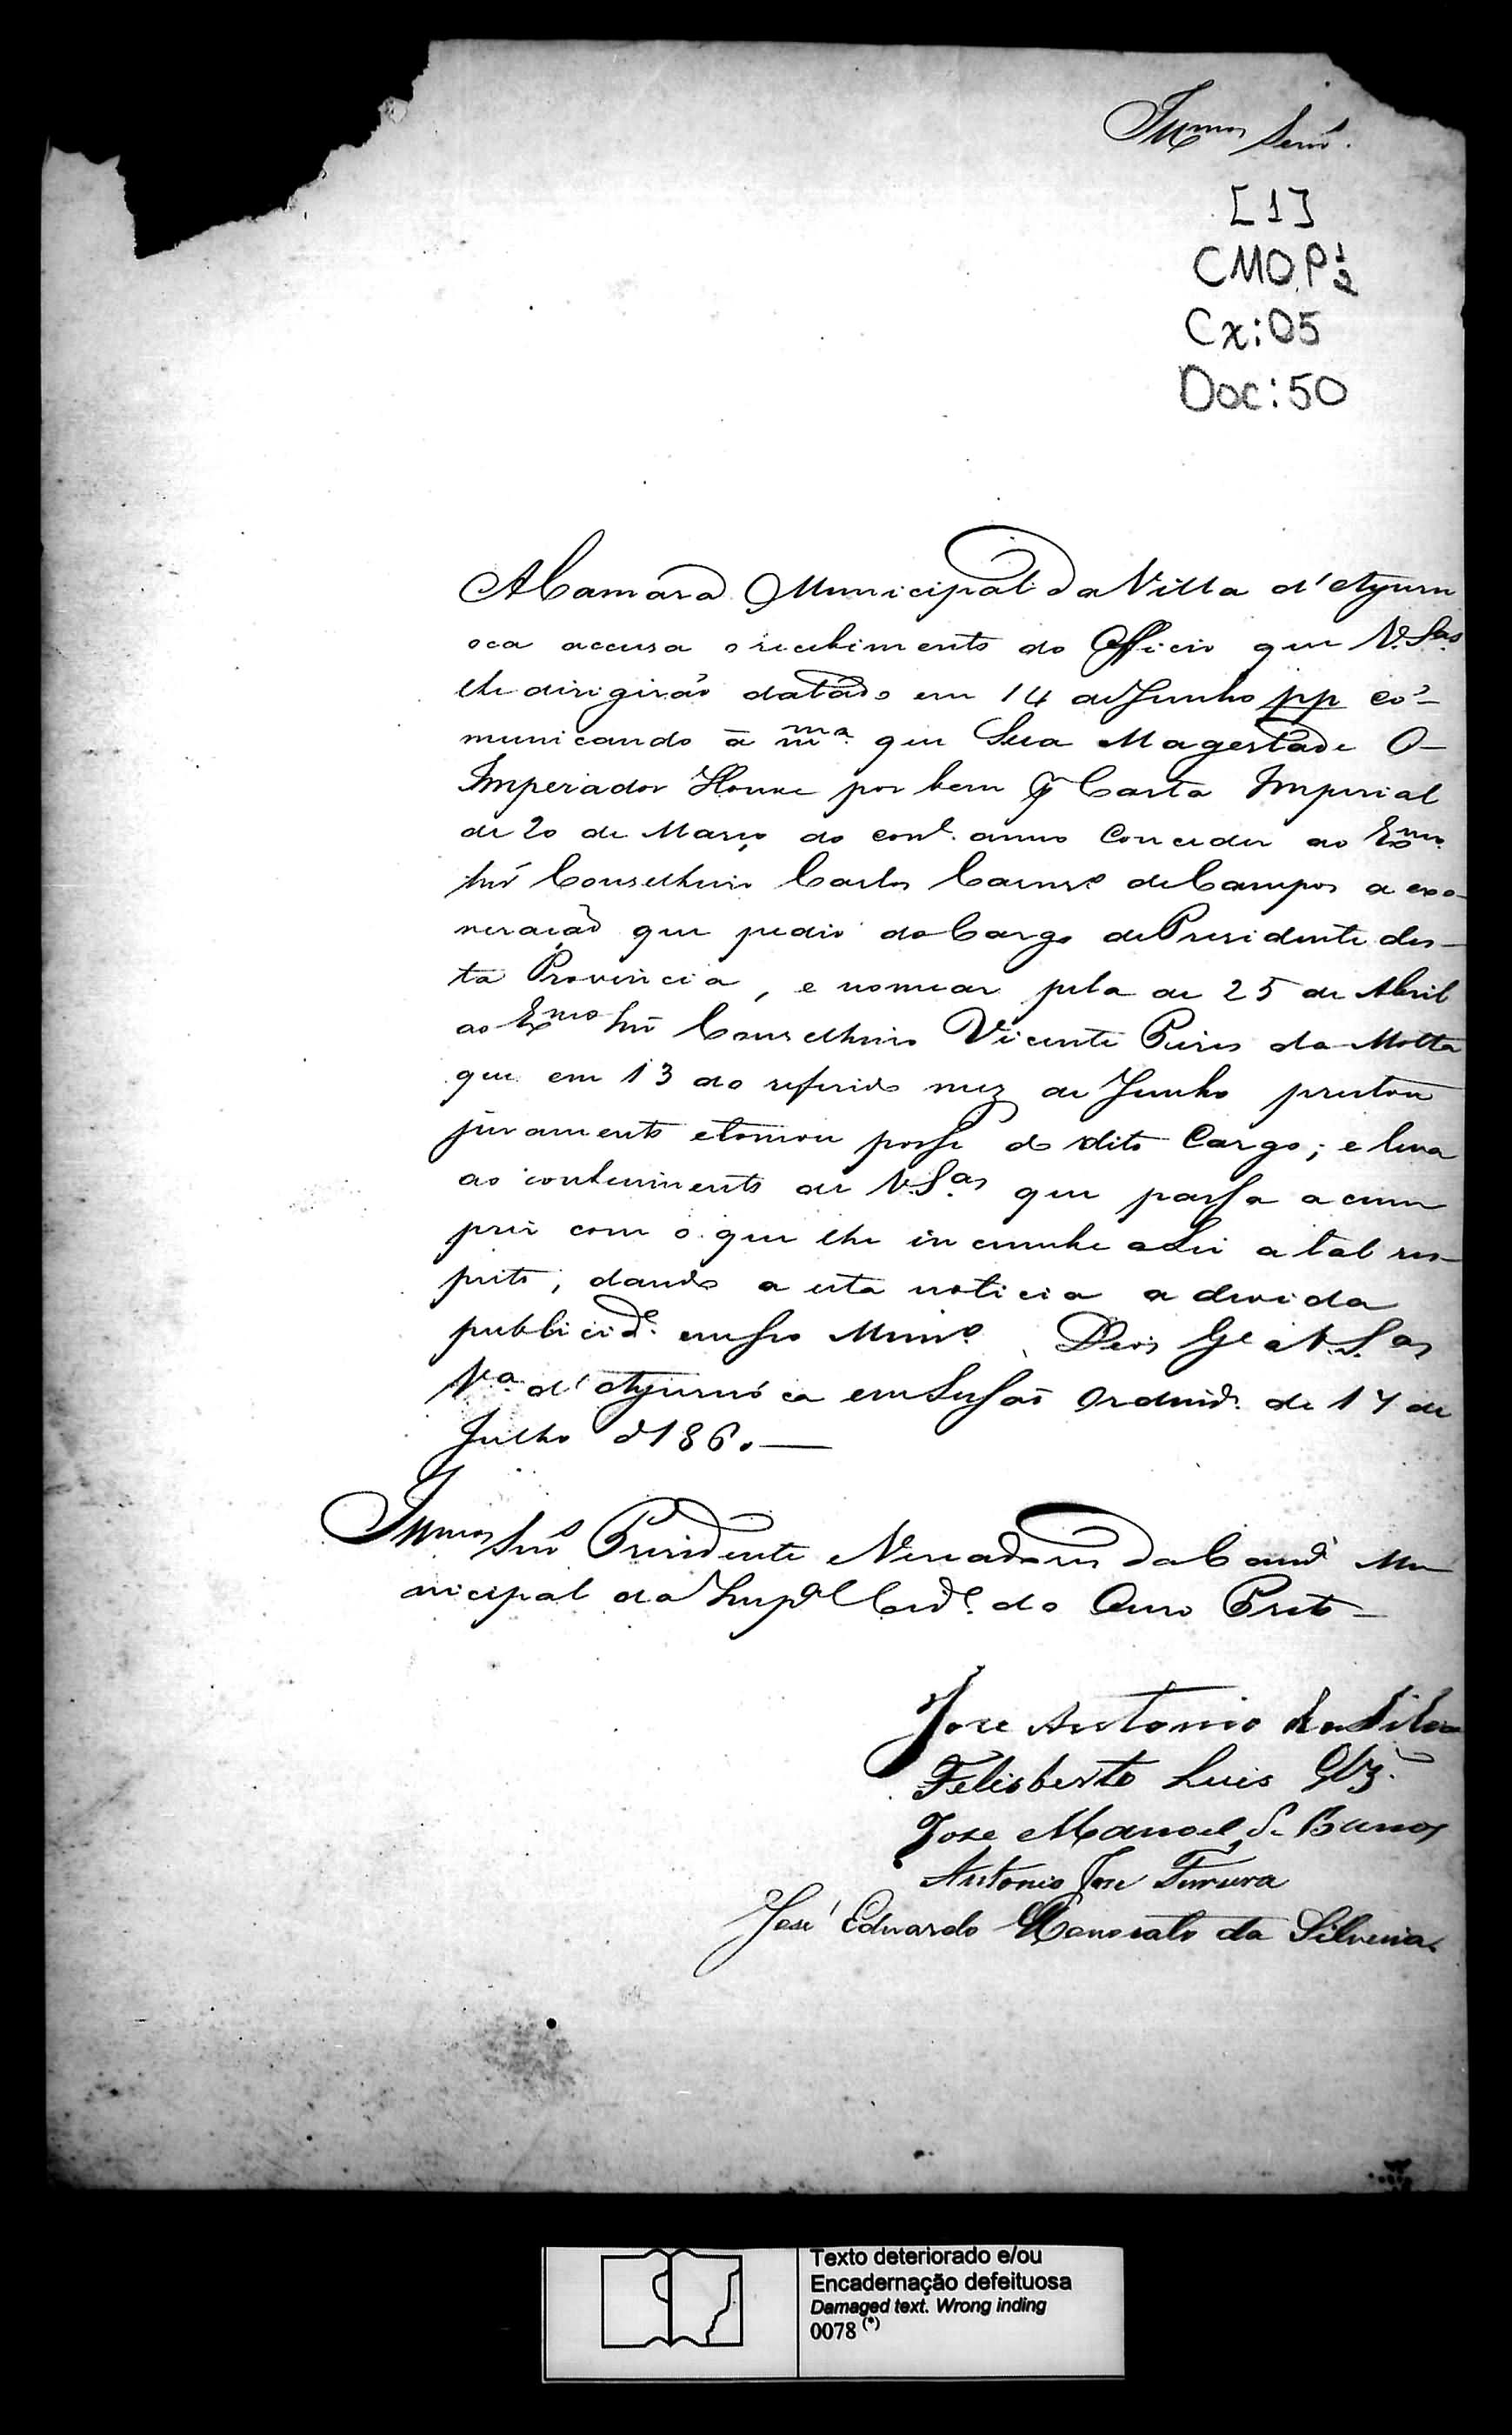 Illmos Senrs.
[1]
CMOP 1/2
Cx: 05
Doc: 50
A Camara Municipal da Villa d'Ayuru
oca accusa o recebimento do Officio que V.Sas.
lhe dirigirão datado em 14 de Junho pp co-
municando á mma. que Sua Magestade O
Imperador Houve por bem Carta Imperial
de 20 de Março do corre. anno Conceder ao Exmo.
Snr Conselheiro Carlos Carnro. de Campos a exo-
neração que pedio do Cargo de Presidente des-
ta Provincia, e nomear pela de 25 de Abril
ao Exmo Snr Conselheiro Vicente Pires da Motta
que em 13 do referido mez de Junho prestou
juramento e tomou posse do dito Cargo; e leva
ao conhecimento de V.Sas que passa a cum
prir com o que lhe incumbe a Lei a tal res-
peito, dando a esta noticia a devida
publicide. em seo Muno. Deos Ge a V.S.as
Va. d'Ayuruóca em Sessão Ordinra. de 17 de
Julho d 1860.—
Illmos Snrs Presidente Vereadores da Camra Mu
nicipal da Impal Cide. do Ouro Preto—
Jose Antonio da Silva
Felisberto Luis Glz.
Jose Manoel S. Barros
Antonio Jose Ferreira
José Eduardo Honorato da Silveira.
Texto deteriorado e/ou
Encadernação defeituosa
Damaged text. Wrong inding
0078 (*)